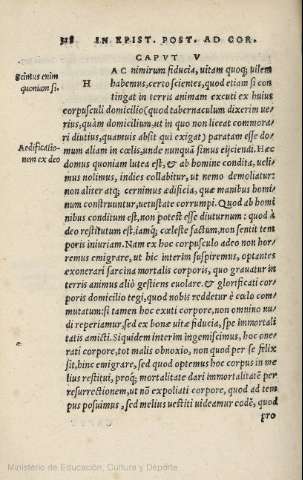 328 IN EPIST. POST. AD COR.
CAPVT V
Scimus enim
quoniam si.
HAC nimirum fiducia, uitam quoq; uilem
habemus, certo scientes, quod etiam si con
tingat in terris animam excuti ex huius
corpusculi domicilio (quod tabernaculum dixerim ue-
rius, quàm domicilium, ut in quo non liceat commora-
ri diutius, quamuis absit qui exigat) paratam esse do-
Aedificatio-
nem ex deo
mum aliam in cœlis, unde nunquā simus eijciendi. Hæc
domus quoniam lutea est, & ab homine condita, ueli-
mus nolimus, indies collabitur, ut nemo demoliatur:
non aliter atq; cernimus ædificia, quæ manibus homi
num construuntur, uetustate corrumpi. Quod ab homi
nibus conditum est, non potest esse diuturnum: quod à
deo restitutum est, iamq; cæleste factum, non sentit tem
poris iniuriam. Nam ex hoc corpusculo adeo non hor-
remus emigrare, ut hic interim suspiremus, optantes
exonerari sarcina mortalis corporis, quo grauatur in
terris animus aliò gestiens euolare, & glorificati cor-
poris domicilio tegi, quod nobis reddetur è cœlo com
mutatum: si tamen hoc exuti corpore, non omnino nu-
di reperiamur, sed ex bonæ uitæ fiducia, spe immortali
tatis amicti. Siquidem interim ingemiscimus, hoc one-
rati corpore, tot malis obnoxio, non quod per se felix
sit, hinc emigrare, sed quod optemus hoc corpus in me
lius restitui, proq; mortalitate dari immortalitatē per
resurrectionem, ut nō expoliati corpore, quod ad tem
pus posuimus, sed melius uestiti uideamur eodē, quod
pro
Ministerio de Educación, Cultura y Deporte